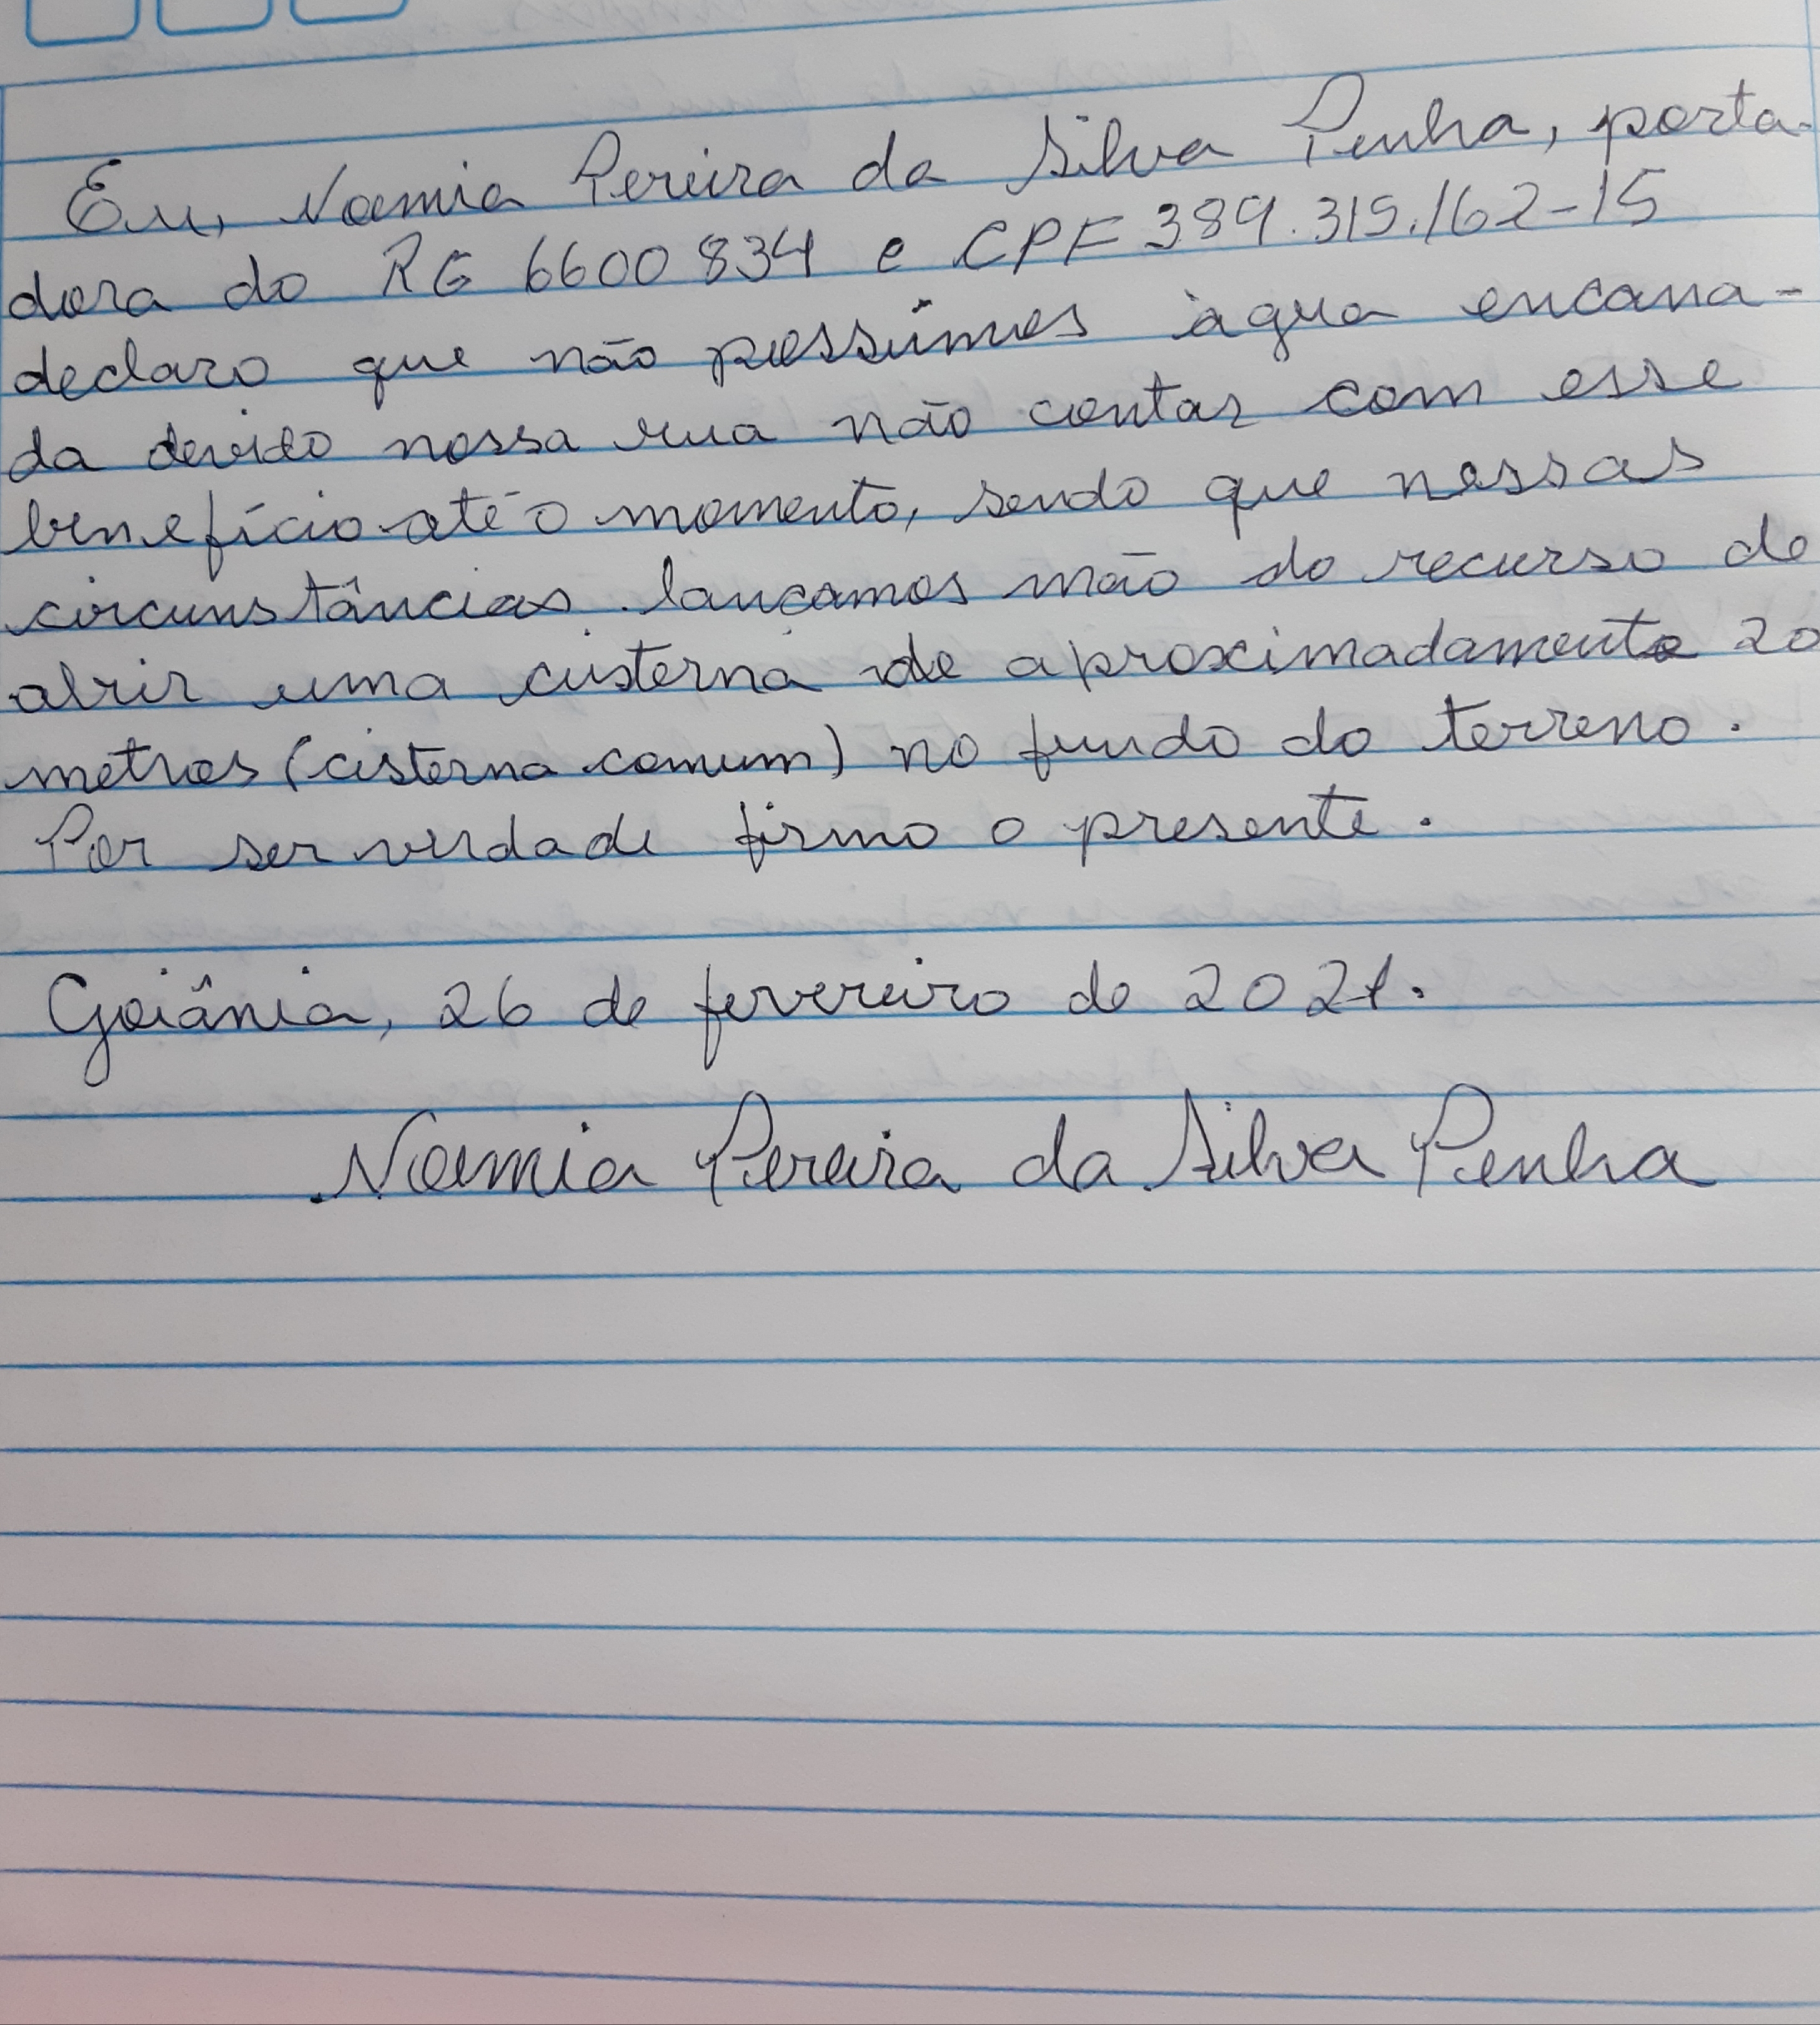 Eu, Noemia Pereira da Silva Penha, porta-
dora do RG 6600834 e CPF 389.315.162-15
declaro que não possuímos àgua encana-
da devido nossa rua não contar com esse
benefício até o momento, sendo que nessas
circunstâncias lançamos mão do recurso de
abrir uma cisterna de aproximadamente 20
metros (cisterna comum) no fundo do terreno.
Por ser verdade firmo o presente.
Goiânia, 26 de fevereiro de 2021.
Noemia Pereira da Silva Penha